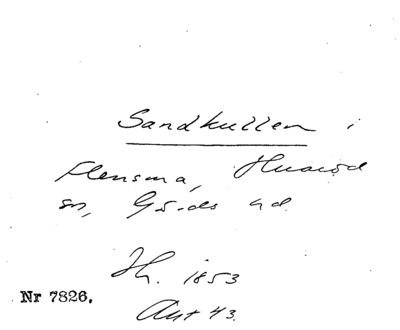 Sandkullen i
Flensma, Hvaröd
sn, Gärds hd
Th. 1853
Nr 7826.
Akt 43.